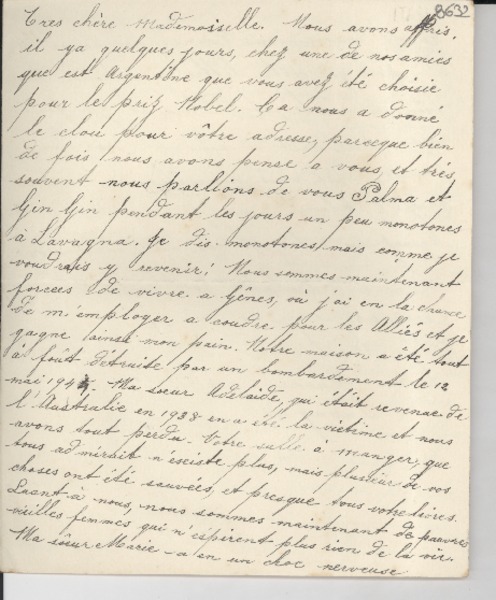 8632
Tres chère Mademoiselle. Nous avons appris,
il ya quelques jours, chez une de nos amies
que est Argentine que vous avez été choisie
pour le prix Nobel. Ca nous a donné
le clou pour vôtre adresse, parceque bien
de fois nous avons pensé a vous, et très
souvent nous parlions de vous Palma et
Gin Gin pendant les jours un peu monotones
à Lavagna. Je dis monotones, mais comme je
voudrais y revenir! Nous sommes maintenant
forcées de vivre a Gênes, où j'ai en la chance
de m'employer a coudre pour les Alliés et je
gagne ainsi mon pain. Notre maison a été tout
à fout détruite par un bombardement le 12
mai 1944. Ma soeur Adelaide, qui était revenue de
l'Australie en 1938 en a été la victime et nous
avons tout perdu. Votre salle à manger, que
tous admirait n'éxiste plus, mais plusieur de vos
choses ont été sauvées, et presque tous votre livres.
Quant-a nous, nous sommes maintenant de pauvres
vieilles femmes qui n'éspirent plus rien de la vie.
Ma sœur Marie - a en un choc nerveuse